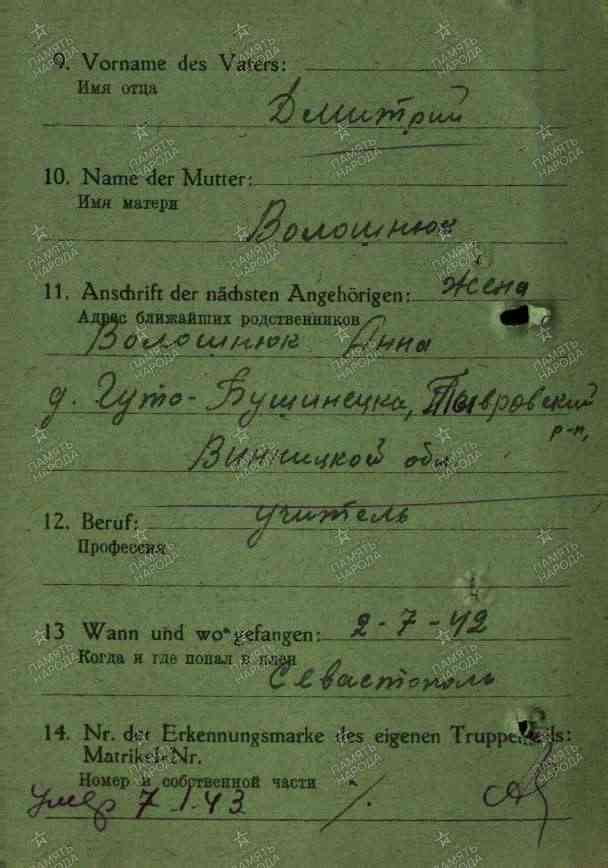 9. Vorname des Vaters:
Имя отца
Дмитрий
10. Name der Mutter:
Имя матери
Волошнюк
11. Anschrift der nächsten Angehörigen: жена
Адрес ближайших родственников
Волошнюк Анна
д. Гуто-Бущинецка, Тывровский
р-н,
Винницкой обл.
12. Beruf: учитель
Профессия
13 Wann und wo gefangen: 2-7-42
Когда и где попал в плен
Севастополь
14. Nr. der Erkennungsmarke des eigenen Truppenteils:
Matrikel-Nr.
Номер и собственной части
умер 7.1.43
ПАМЯТЬ
НАРОДА